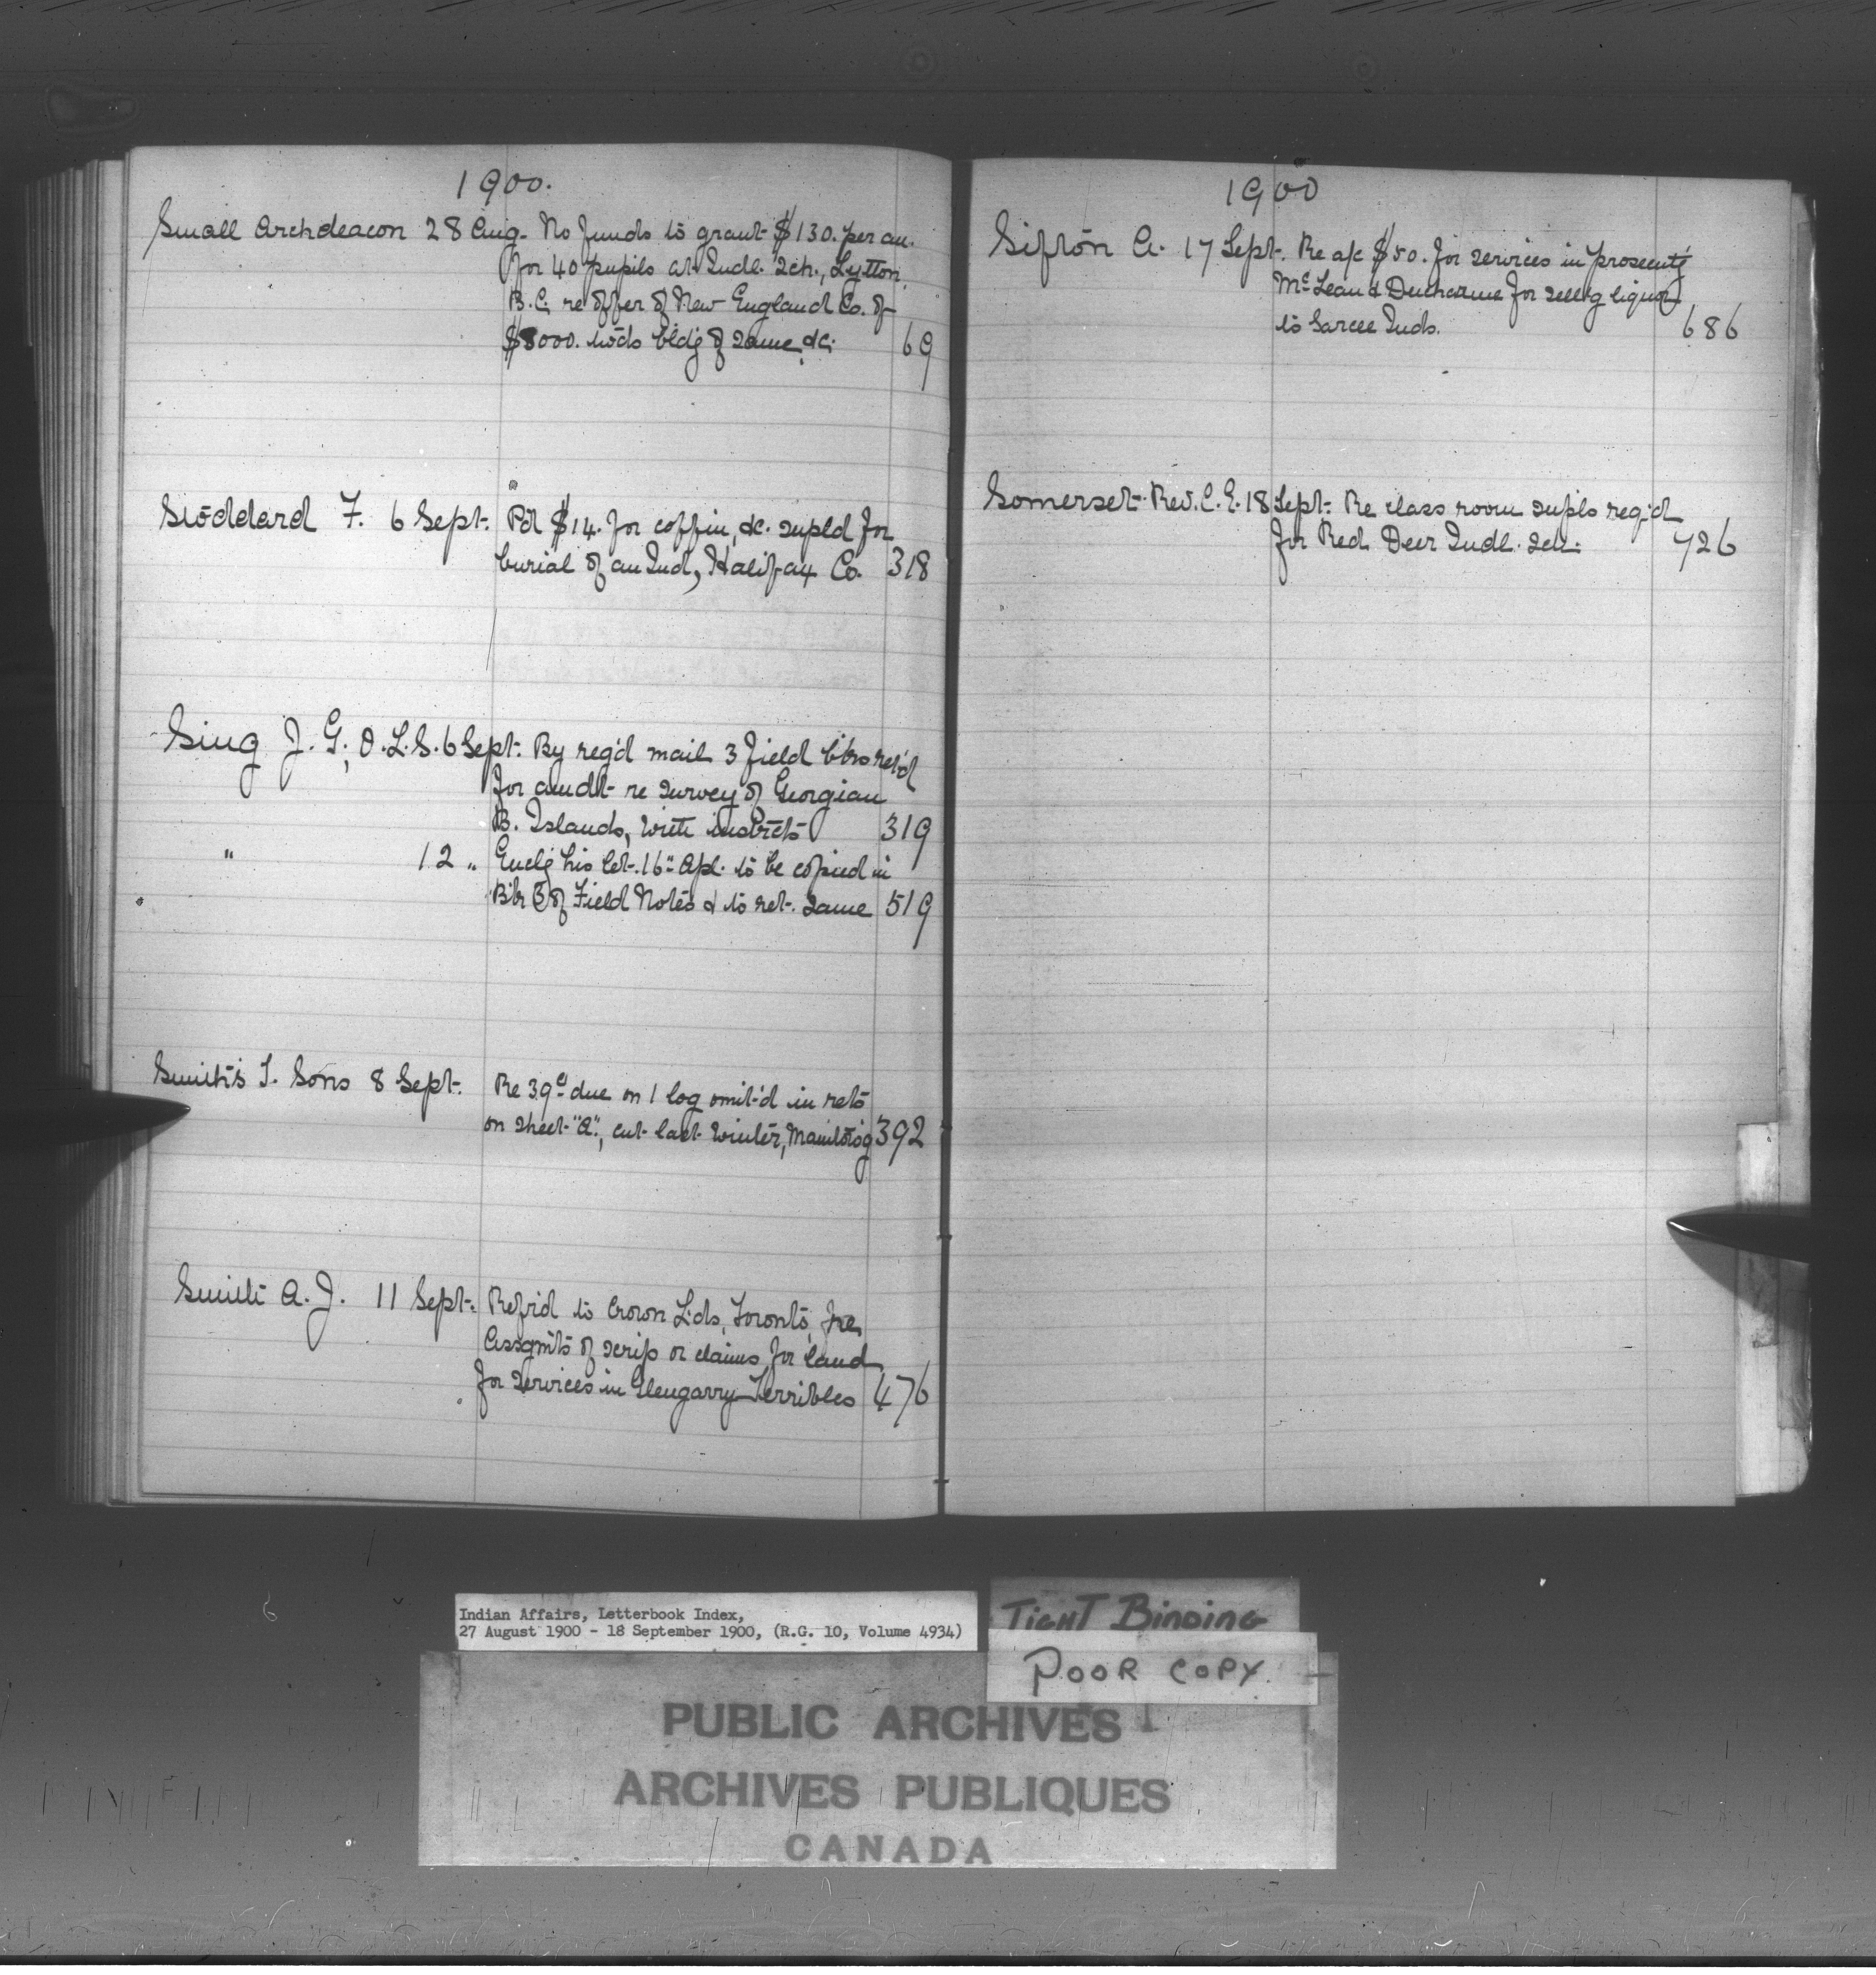 1900.
Small Archdeacon 28 Aug. No funds to grant $130. per an.
for 40 pupils at Indl. Sch., Lytton,
B.C. re offer of New England Co. of
$8000. tow'ds bldg of same &c. 69
Stoddard F. 6 Sept. Pd $14. for coffin, &c. supld for
burial of an Ind, Halifax Co. 318
Sing J. G., O.L.S. 6 Sept. By reg'd mail 3 field bks ret'd
for amdt re survey of Georgian
B. Islands, with instrcts 319
" 12 " Enclg his let. 16" Apl. to be copied in
Bk 3 of Field Notes & to ret. same 519
Smith's J. Sons 8 Sept. Re 39c due on 1 log omit'd in rets
on sheet "A", cut last winter, 392
Smith A. J. 11 Sept. Refr'd to Crown Lds, Toronto, re
Assgmts of scrip or claims for land
for services in Glengarry Terribles 476
1900
Sifton A. 17 Sept. Re a/c $50. for services in prosecutg
McLean & Ducharme for sellg liquor
to Sarcee Inds. 686
Somerset Rev. C. E. 18 Sept. Re class room supls req'd
for Red Deer Indl. Sch. 726
Indian Affairs, Letterbook Index,
27 August 1900 - 18 September 1900, (R.G. 10, Volume 4934)
TIGHT BINDING
POOR COPY.
PUBLIC ARCHIVES
ARCHIVES PUBLIQUES
CANADA